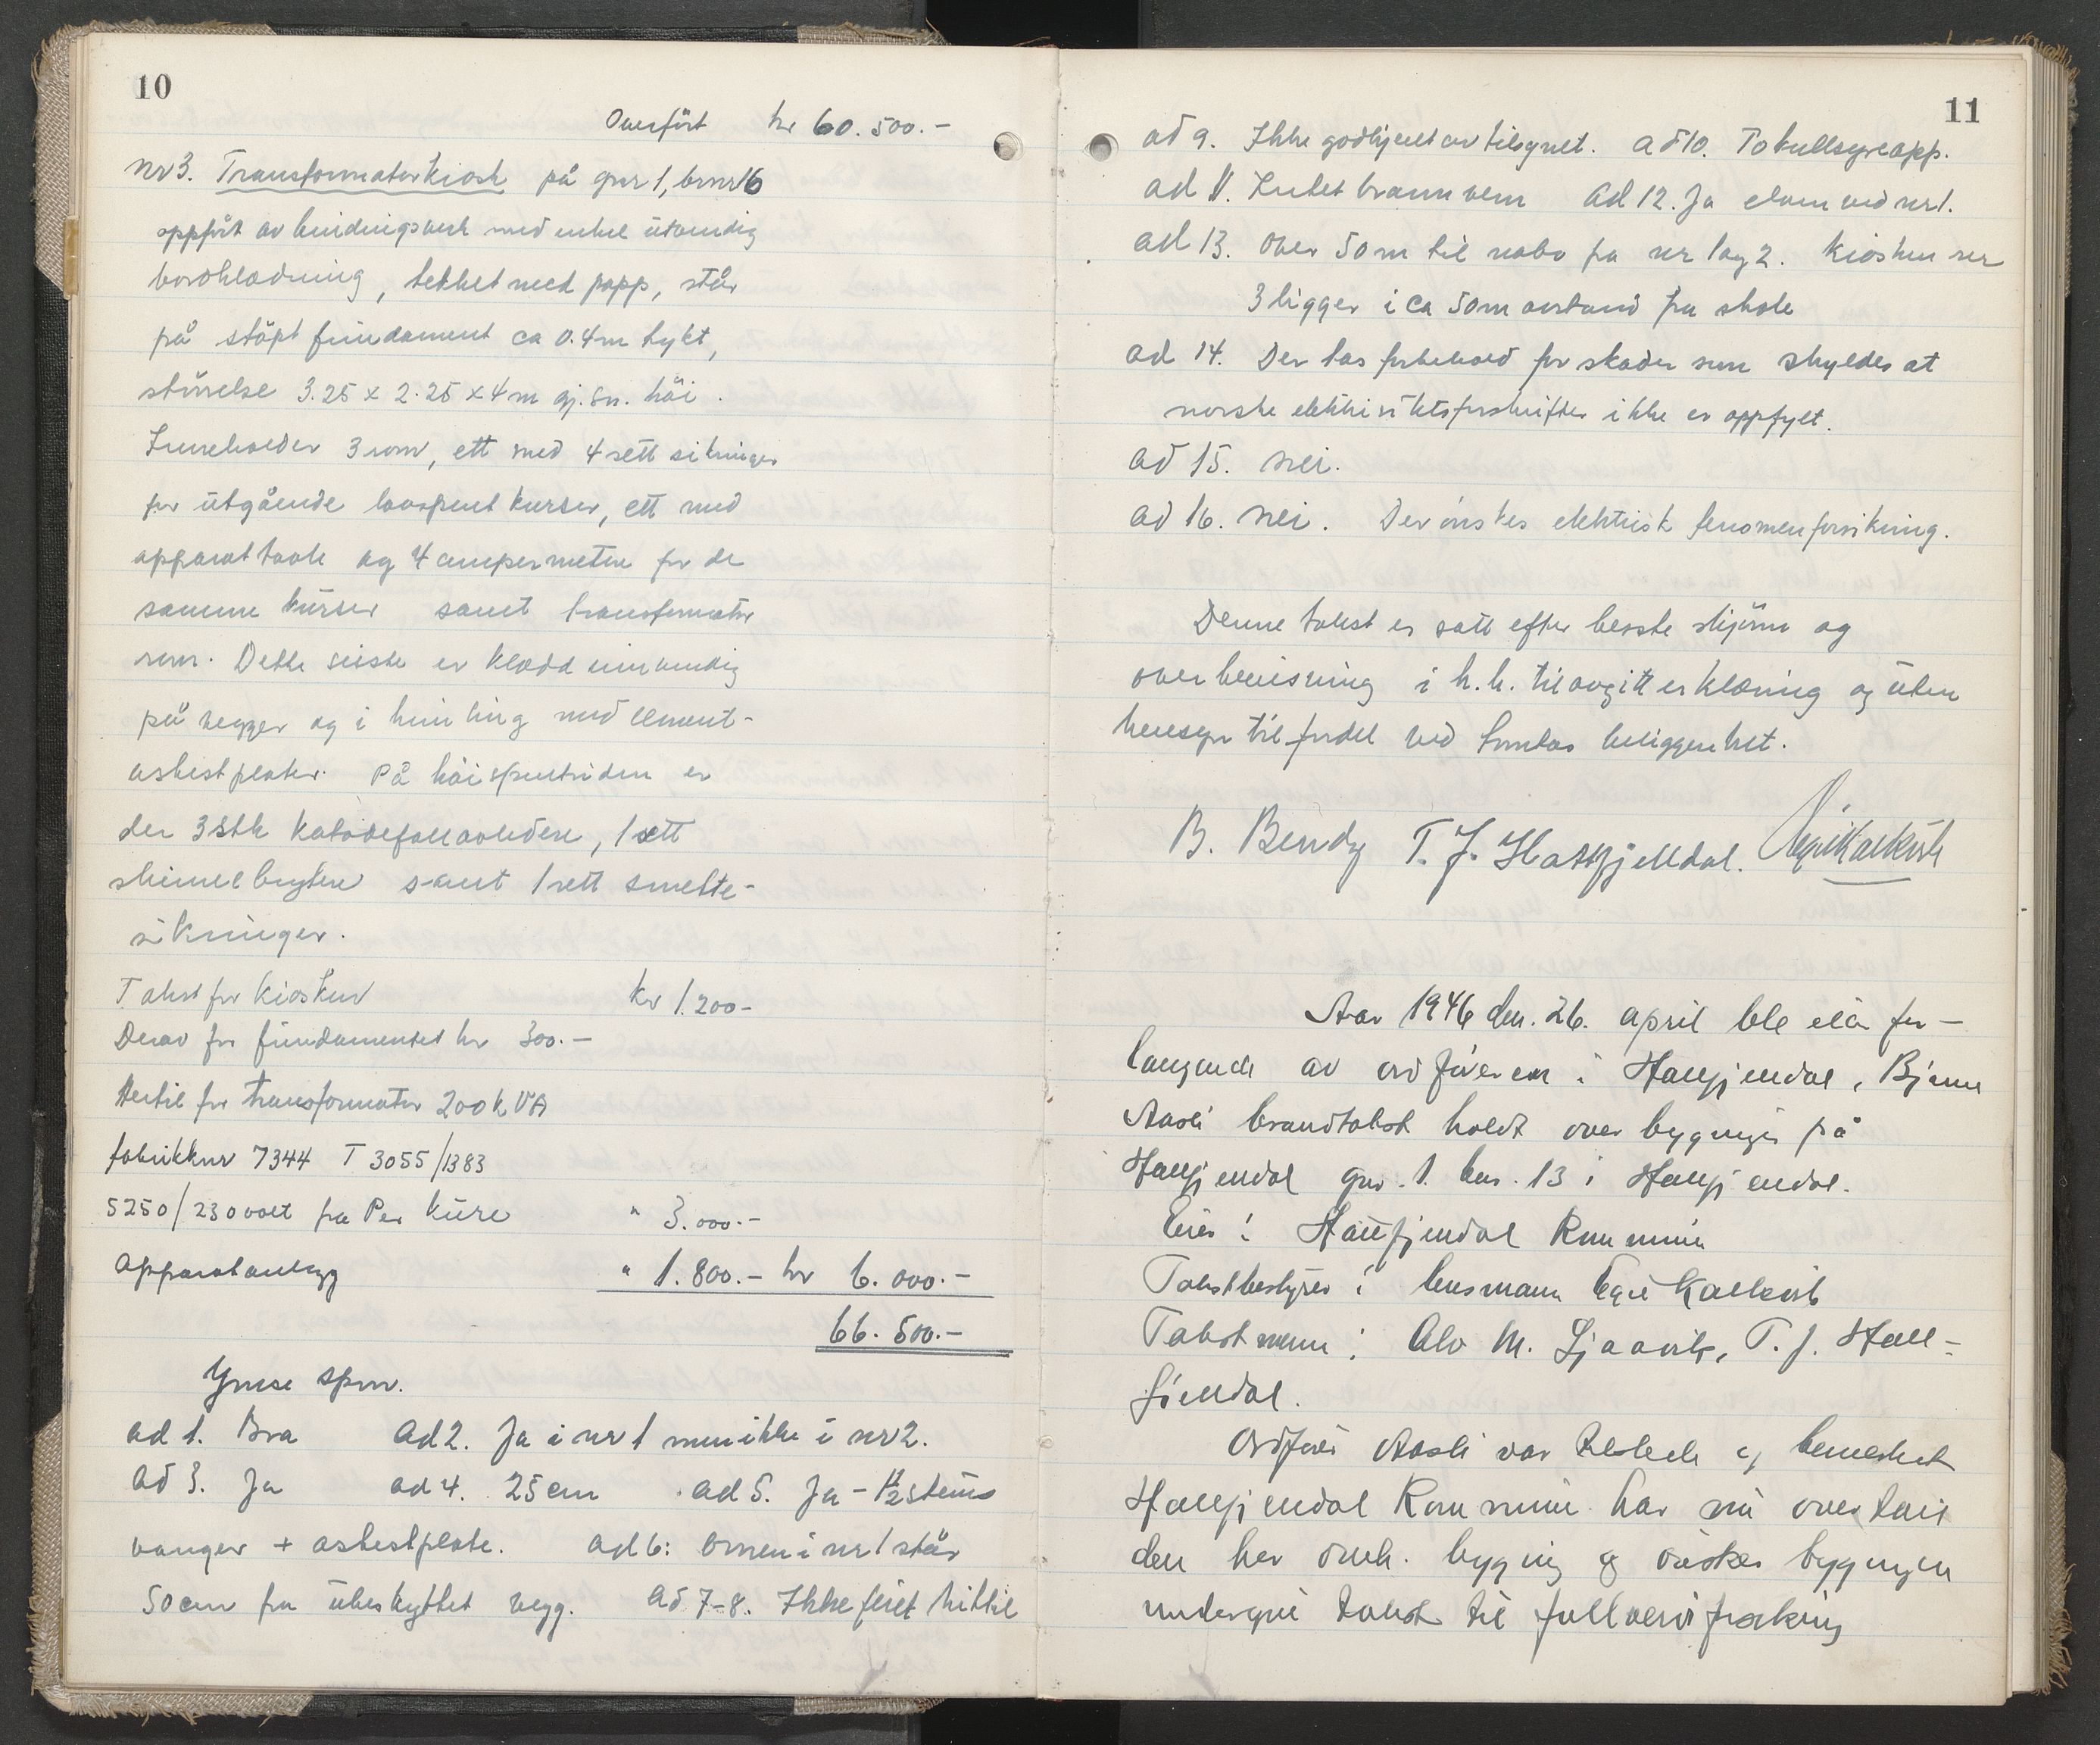 10
Overfört kr 60.500.-
nr 3. Transformatorkiosk på gnr 1, brnr 16
oppfört av bindingsverk med enkel utvendig
bordklædning, tekket med papp, står
på stöpt fundament ca 0.4 m tykt,
störrelse 3.25 x 2.25 x 4 m gj.sn. höi.
Inneholder 3 rom, ett med 4 sett sikringer
for utgående lavspent kurser, ett med
apparattavle og 4 ampermetre for de
samme kurser samt transformator
rom. Dette siste er klædd innvendig
på vegger og i himling med cement-
asbestplater. På höispentsiden er
der 3 stk katodefallavledere, 1 sett
skillebrytere samt 1 sett smelte-
sikringer.
Takst for kiosken kr 1.200-
Derav for fundamentet kr 300.-
Hertil for transformator 200 k VA
fabrikknr 7344 T 3055/1383
5250/230 volt fra Per Kure " 3.000.-
Apparatanlegg " 1.800.- kr 6.000.-
66.500.-
Ymse spm.
ad 1. Bra ad 2. Ja i nr 1 men ikke i nr 2.
ad 3. Ja ad 4. 25 cm ad 5. Ja - 1/2 stens
vanger + asbestplate. ad 6: Ovnen i nr 1 står
50 cm fra ubeskyttet vegg. ad 7-8. Ikke feiet hittil
11
ad 9. Ikke godkjent av tilsynet. ad 10. To kullsyreapp.
ad 11. Intet brannvern ad 12. Ja elven ved nr 1.
ad 13. Over 50 m til nabo fra nr 1 og 2. Kiosken nr
3 ligger i ca 50 m avstand fra skole
ad 14. Der tas forbehold for skader som skyldes at
norske elektrisitetsforskrifter ikke er oppfylt.
ad 15. nei.
ad 16. nei. Der önskes elektrisk fenomenforsikring.
Denne takst er satt efter beste skjönn og
overbevisning i h.h. til avgitt erklæring og uten
hensyn til fordel ved tomtas beliggenhet.
B. Bendz T. J. Hattfjelldal. Egil Kalkvik
Aar 1946 den. 26. april ble efter for-
langende av ordföreren i Hattfjelldal, Bjarne
Aasli brandtakst holdt over bygninger på
Hattfjelldal gnr. 1. bnr. 13 i Hattfjelldal.
Eier: Hattfjelldal Kommune
Takstbestyrer: lensmann Egil Kalkvik
Takstmenn: Alv M. Sjaavik, T. J. Hatt-
fjelldal.
Ordförer Aasli var tilstede og bemerket
Hattfjelldal Kommune har nu overtatt
den her omh. bygning og önsker bygningen
undergitt takst til fullverdiforsikring